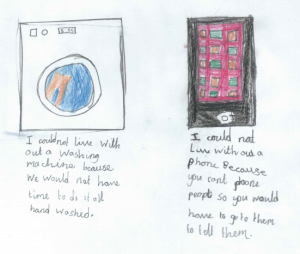 I couldnot live with
out a washing
machine because
we would not have
time to do it all
hand washed.
I could not
Live with out a
Phone Because
you cant phone
people so you would
have to go to them
to tell them.